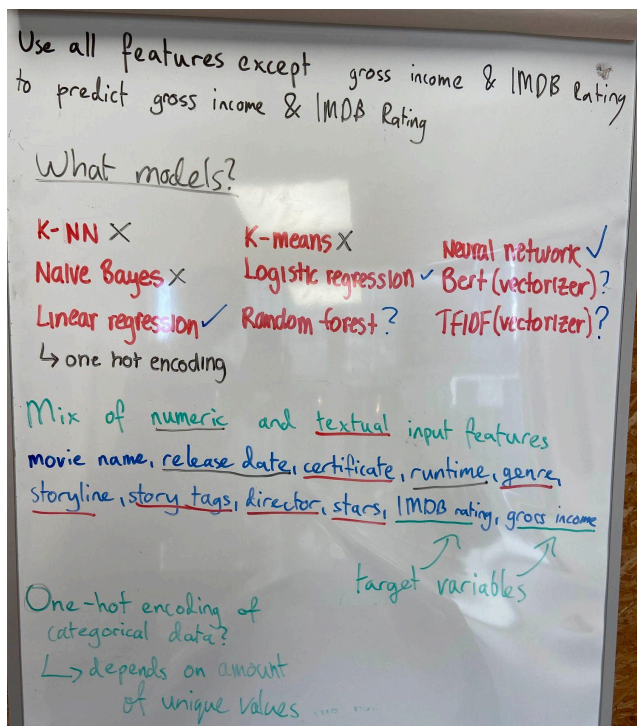 Use all features except gross income & IMDB Rating
to predict gross income & IMDB Rating
What models?
K-NN X
Naive Bayes X
Linear regression ✓
↳ one hot encoding
K-means X
Logistic regression ✓
Random forest?
Neural network ✓
Bert (vectorizer)?
TFIDF (vectorizer)?
Mix of numeric and textual input features
movie name, release date, certificate, runtime, genre,
storyline, story tags, director, stars, IMDB rating, gross income
target variables
One-hot encoding of
categorical data?
↳ depends on amount
of unique values